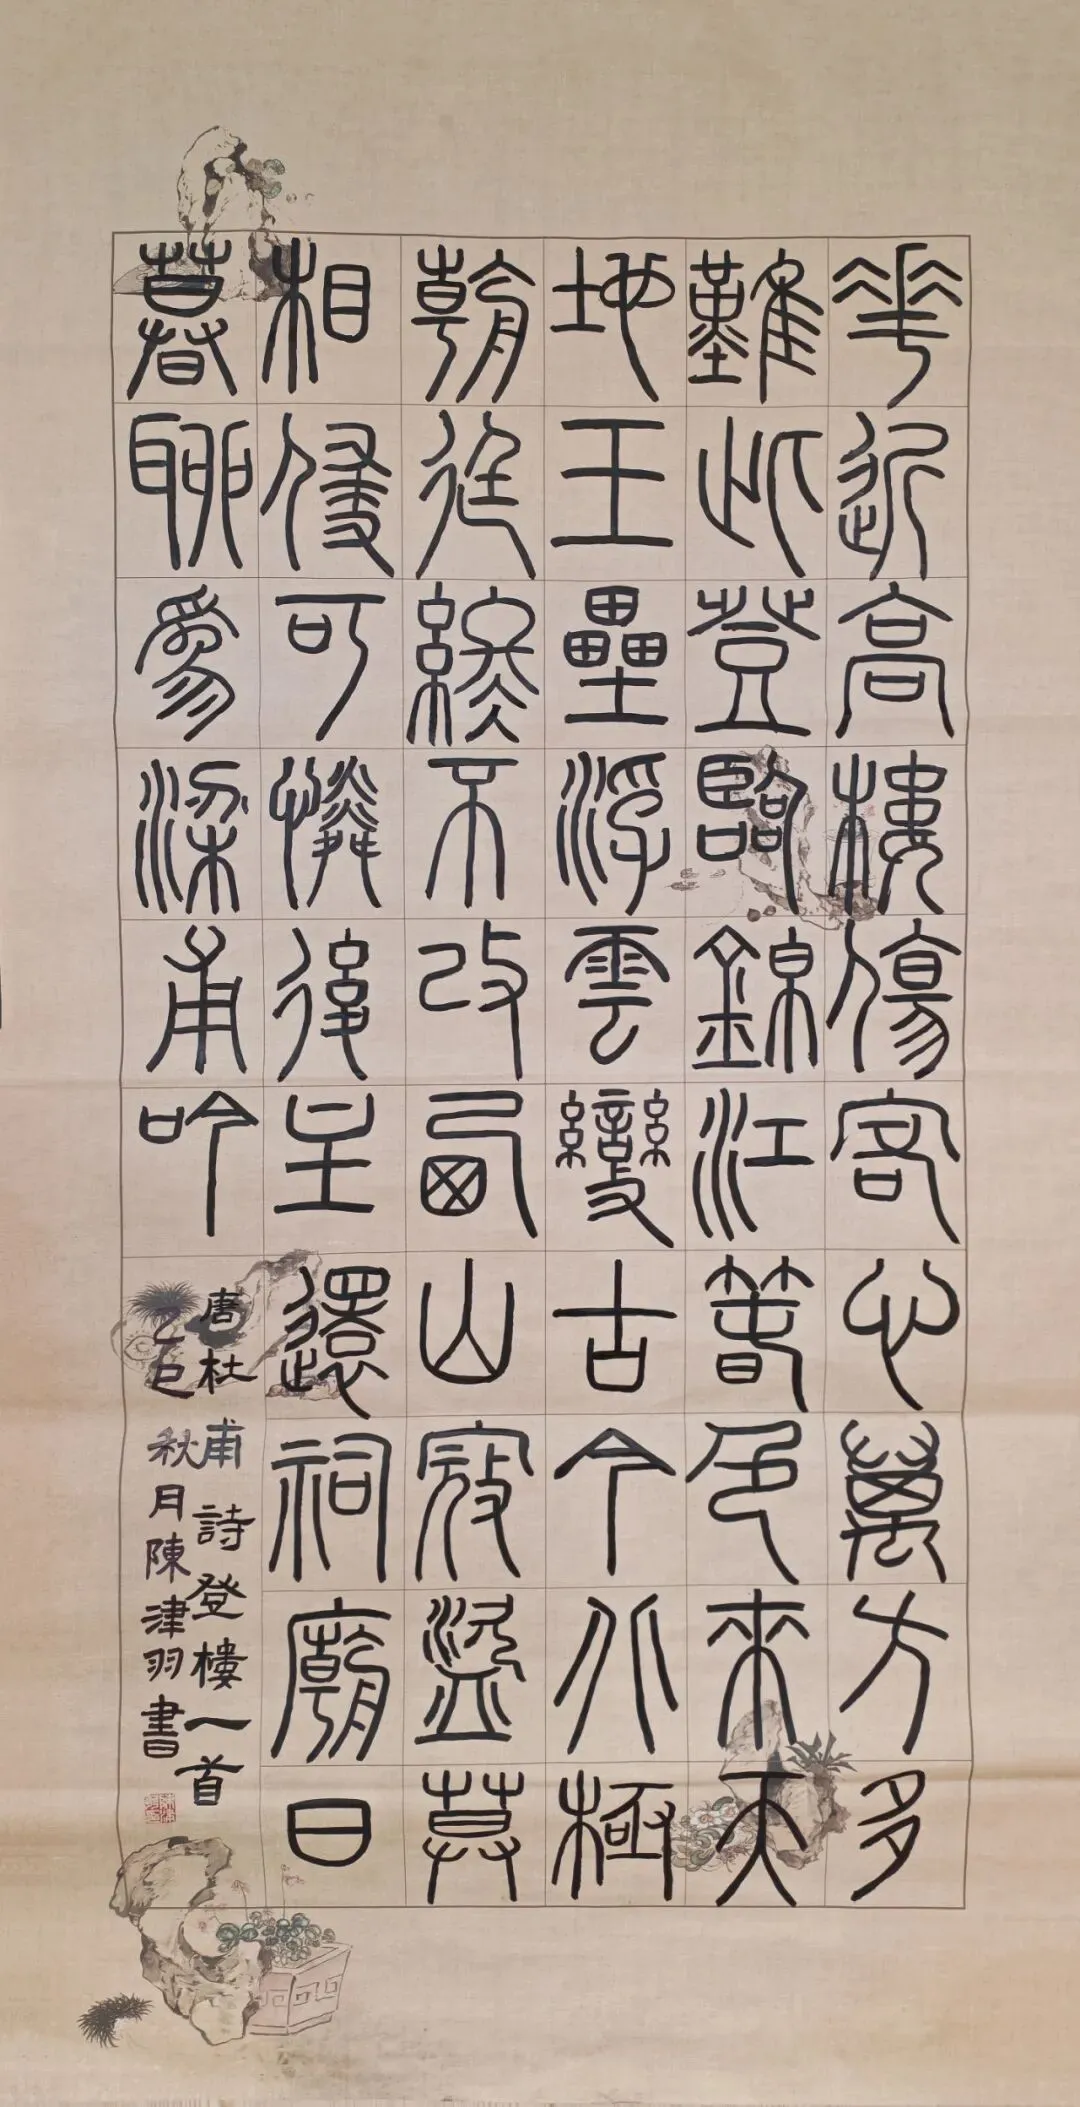 華近高樓傷客心萬方多
難此登臨錦江春色來天
地玉壘浮雲變古今北極
朝廷終不改西山寇盜莫
相侵可憐後主還祠廟日
暮聊爲梁甫吟
唐杜甫詩登樓一首
乙巳秋月陳津羽書